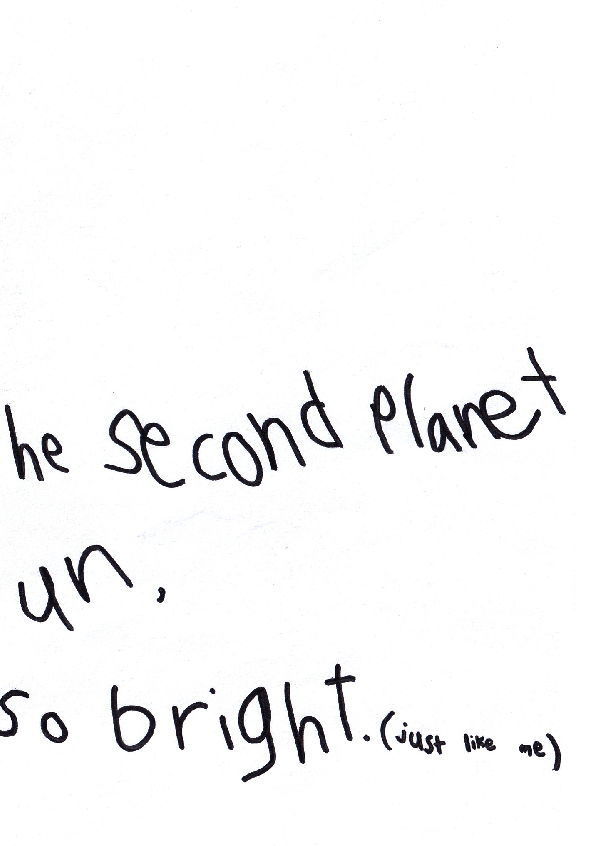 he second planet
un,
so bright. (just like me)